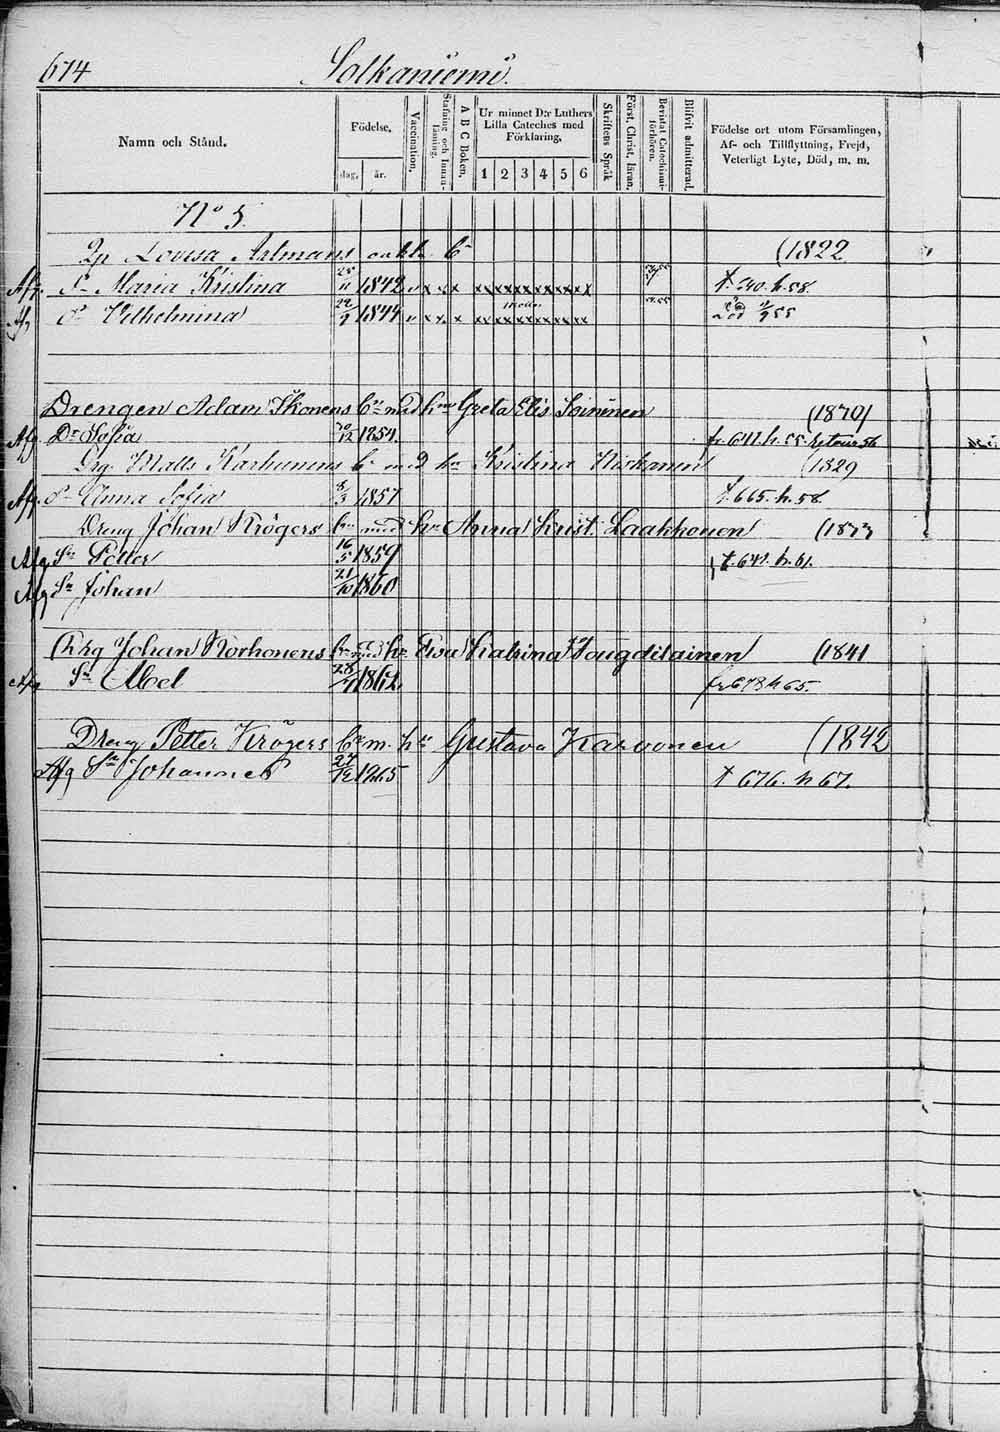 674 Solkaniemi.
Namn och Stånd.
Födelse.
dag. år.
Vaccination.
Stafning och Innan-läsning.
A B C Boken.
Ur minnet D:r Luthers Lilla Cateches med Förklaring.
1 2 3 4 5 6
Skriftens Språk
Först. Christ. läran.
Bevistat Catechismi-förhören.
Blifvit admitterad.
Födelse ort utom Församlingen,
Af- och Tillflyttning, Frejd,
Veterligt Lyte, Död, m. m.
No 5.
Lovisa Artmans oäkta b (1822
Afg. D Maria Kristina 25/11 1842 x x x x x x x x x x x x t. 240. h. 58.
Af D Vilhelmina 22/9 1844 x x x x x x x x x x x Död 55
Drengen Adam Ikonens b med hu Greta Elis Soininen (1870)
Afg. Dr Sofia 12 1854. fr 641. h. 55. retour 56
Drg Matts Karhunens b med hu Kristina Niskanen (1829
Afg. D Anna Sofia 8/3 1857 t. 665. h. 58.
Dreng Johan Krögers bn med hu Anna Krist. Laakkonen
Afg Sn Petter 16/5 1859 t. 641. h. 61.
Afg Sn Johan 21/10 1860
Johan Korhonens bn med hu Eva Katrina (1841
Afg Sn Abel 1862 fr 678 h 65.
Dreng Petter Krögers bn m. hu Gustava Karvonen (1842
Afg Sn Johannes 27/12 1865 t 676. h 67.